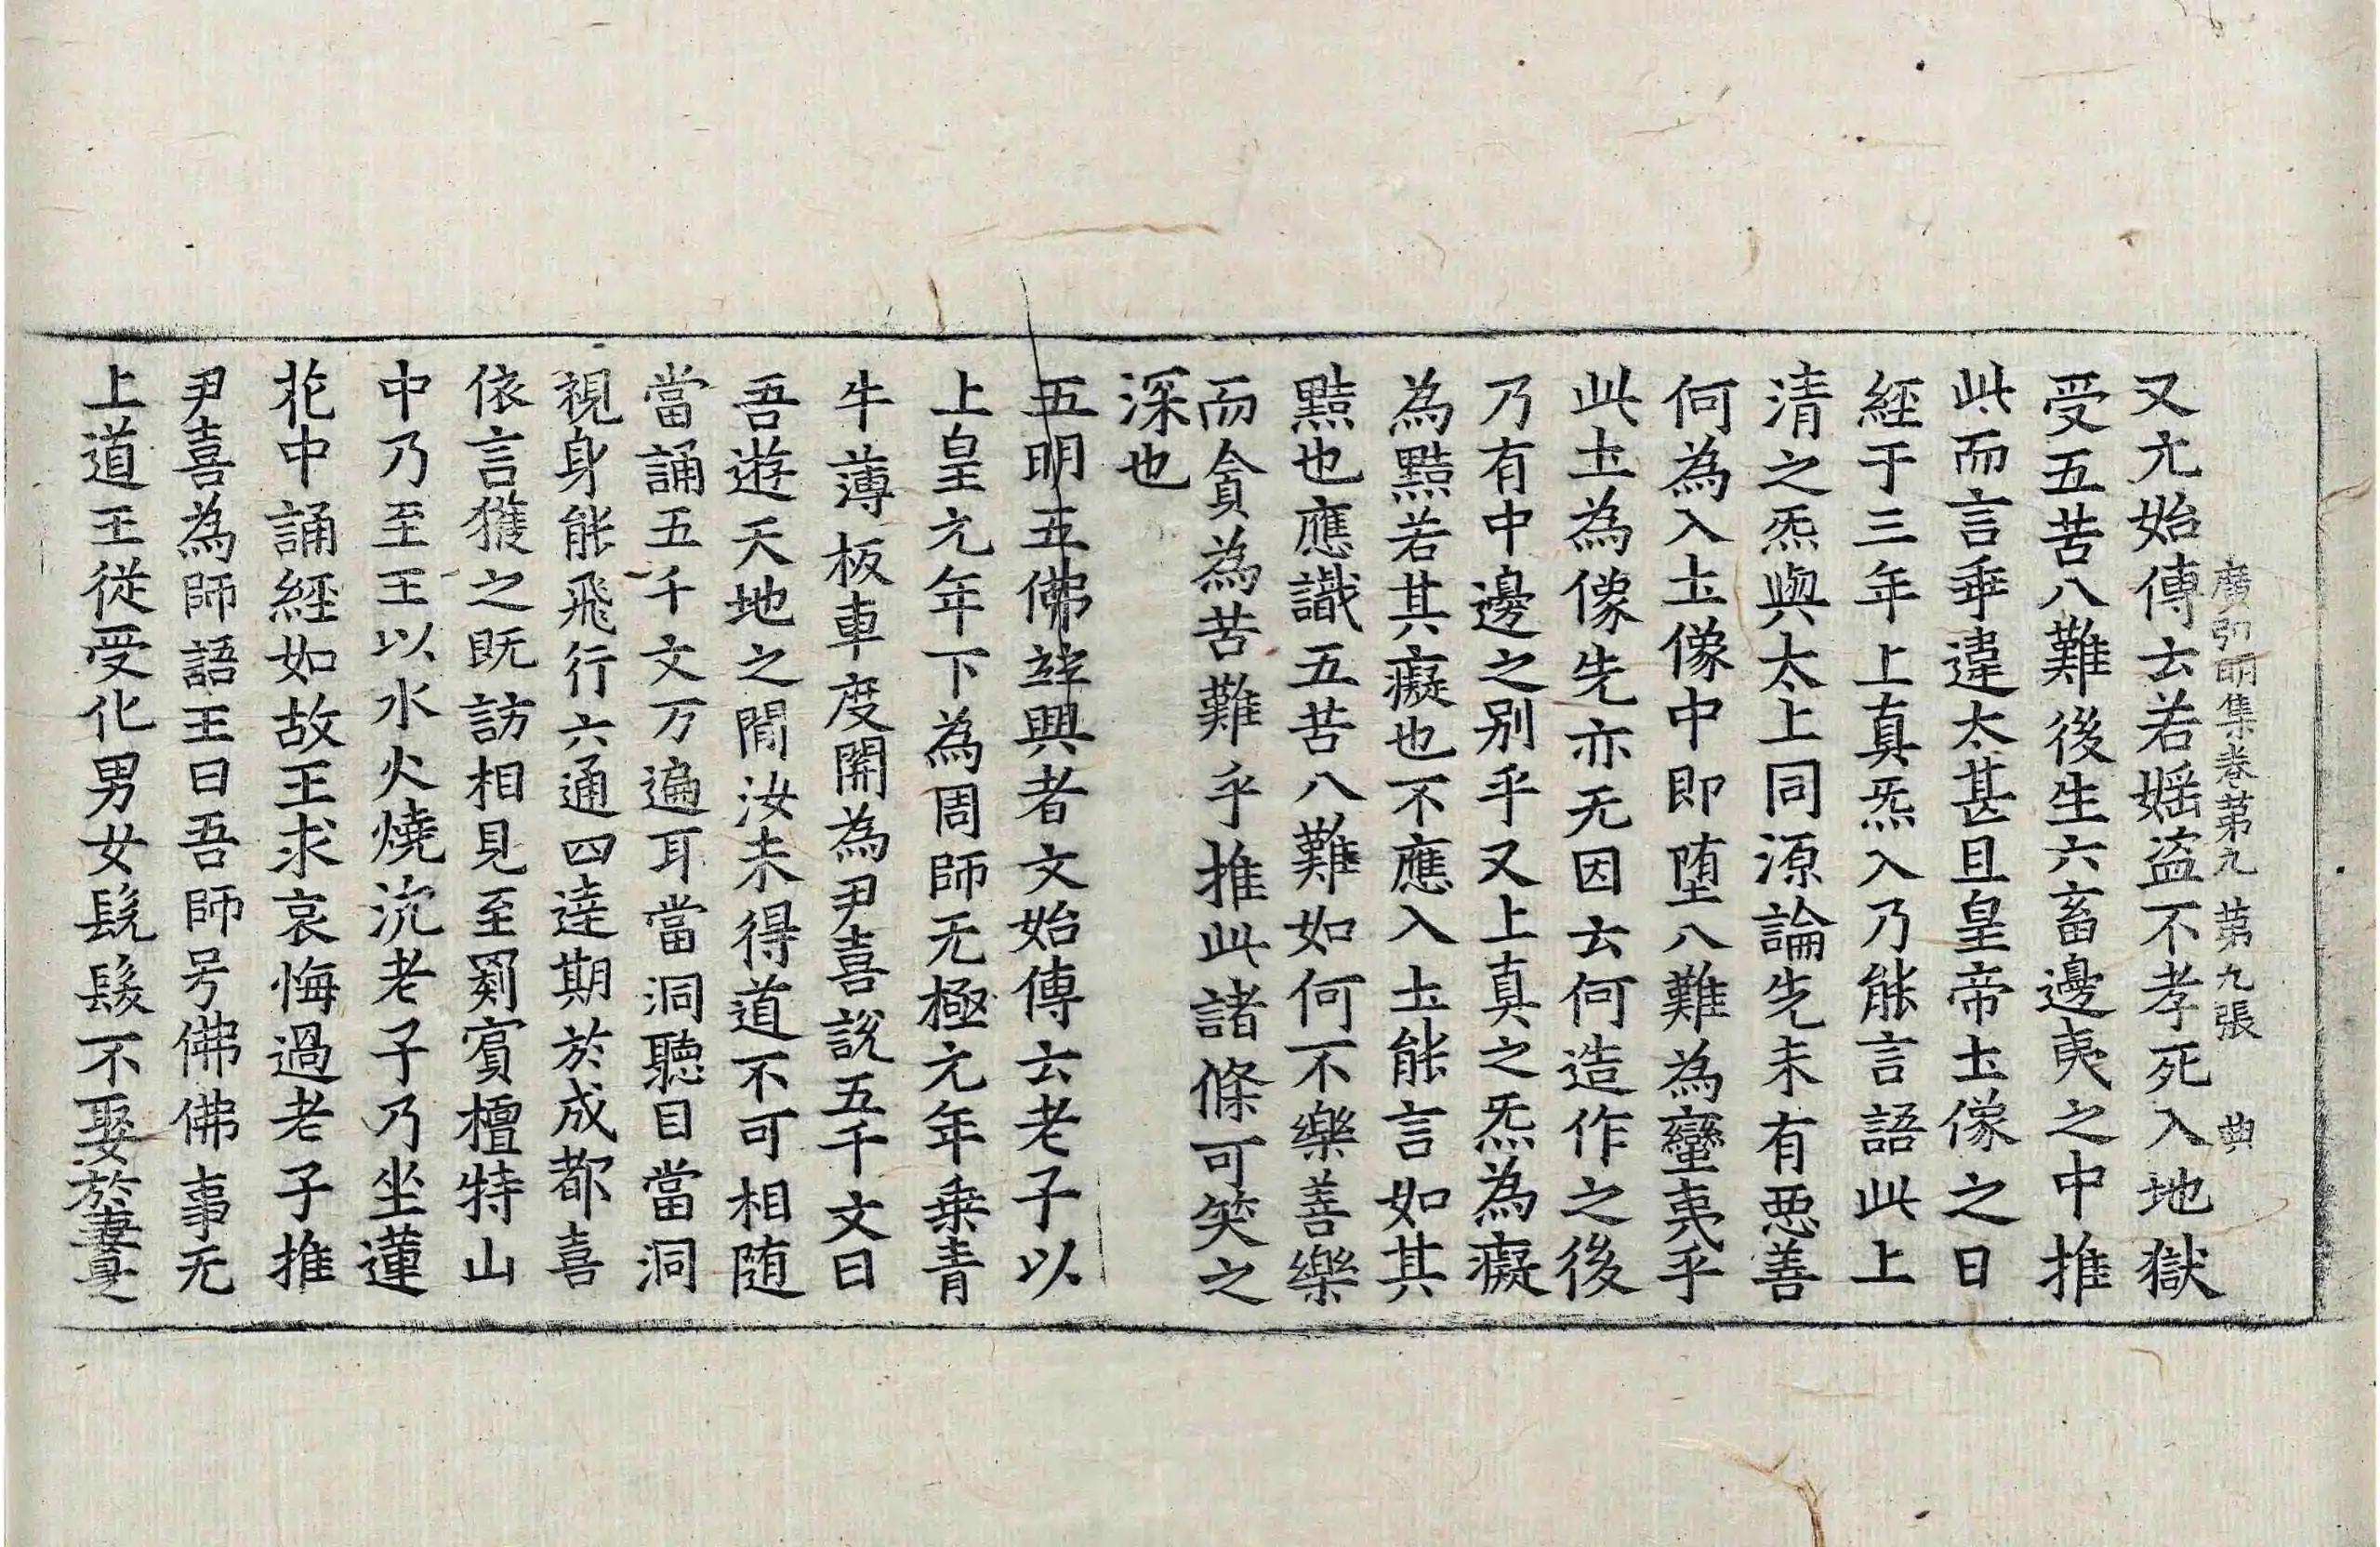 廣弘明集卷第九　第九張　典
又亢始傳云若婬盗不孝死入地獄
受五苦八難後生六畜邊夷之中推
此而言乖違太甚且皇帝土像之日
經于三年上真炁入乃能言語此上
清之炁與太上同源論先未有惡善
何為入土像中即堕八難為蠻夷乎
此土為像先亦无因云何造作之後
乃有中邊之别乎又上真之炁為癡
為黠若其癡也不應入土能言如其
黠也應識五苦八難如何不樂善樂
而貪為苦難乎推此諸條可笑之
深也
五明五佛並興者文始傳云老子以
上皇元年下為周師无極元年乗青
牛薄板車度關為尹喜說五千文曰
吾遊天地之間汝未得道不可相随
當誦五千文万遍耳當洞聽目當洞
視身能飛行六通四達期於成都喜
依言獲之既訪相見至罽賓檀特山
中乃至王以水火燒沉老子乃坐蓮
花中誦經如故王求哀悔過老子推
尹喜為師語王曰吾師号佛佛事无
上道王從受化男女髡髮不娶於妻是